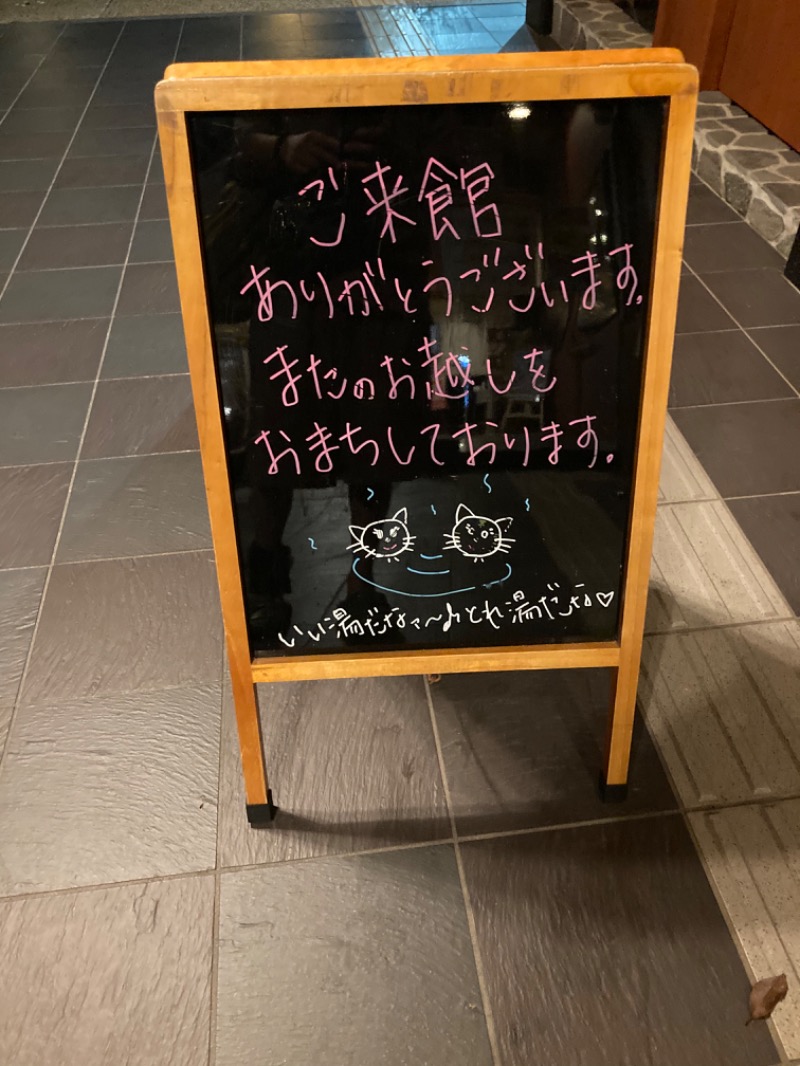 ご来館
ありがとうございます。
またのお越しを
おまちしております。
いい湯だなァ〜♪とれ湯だな♡